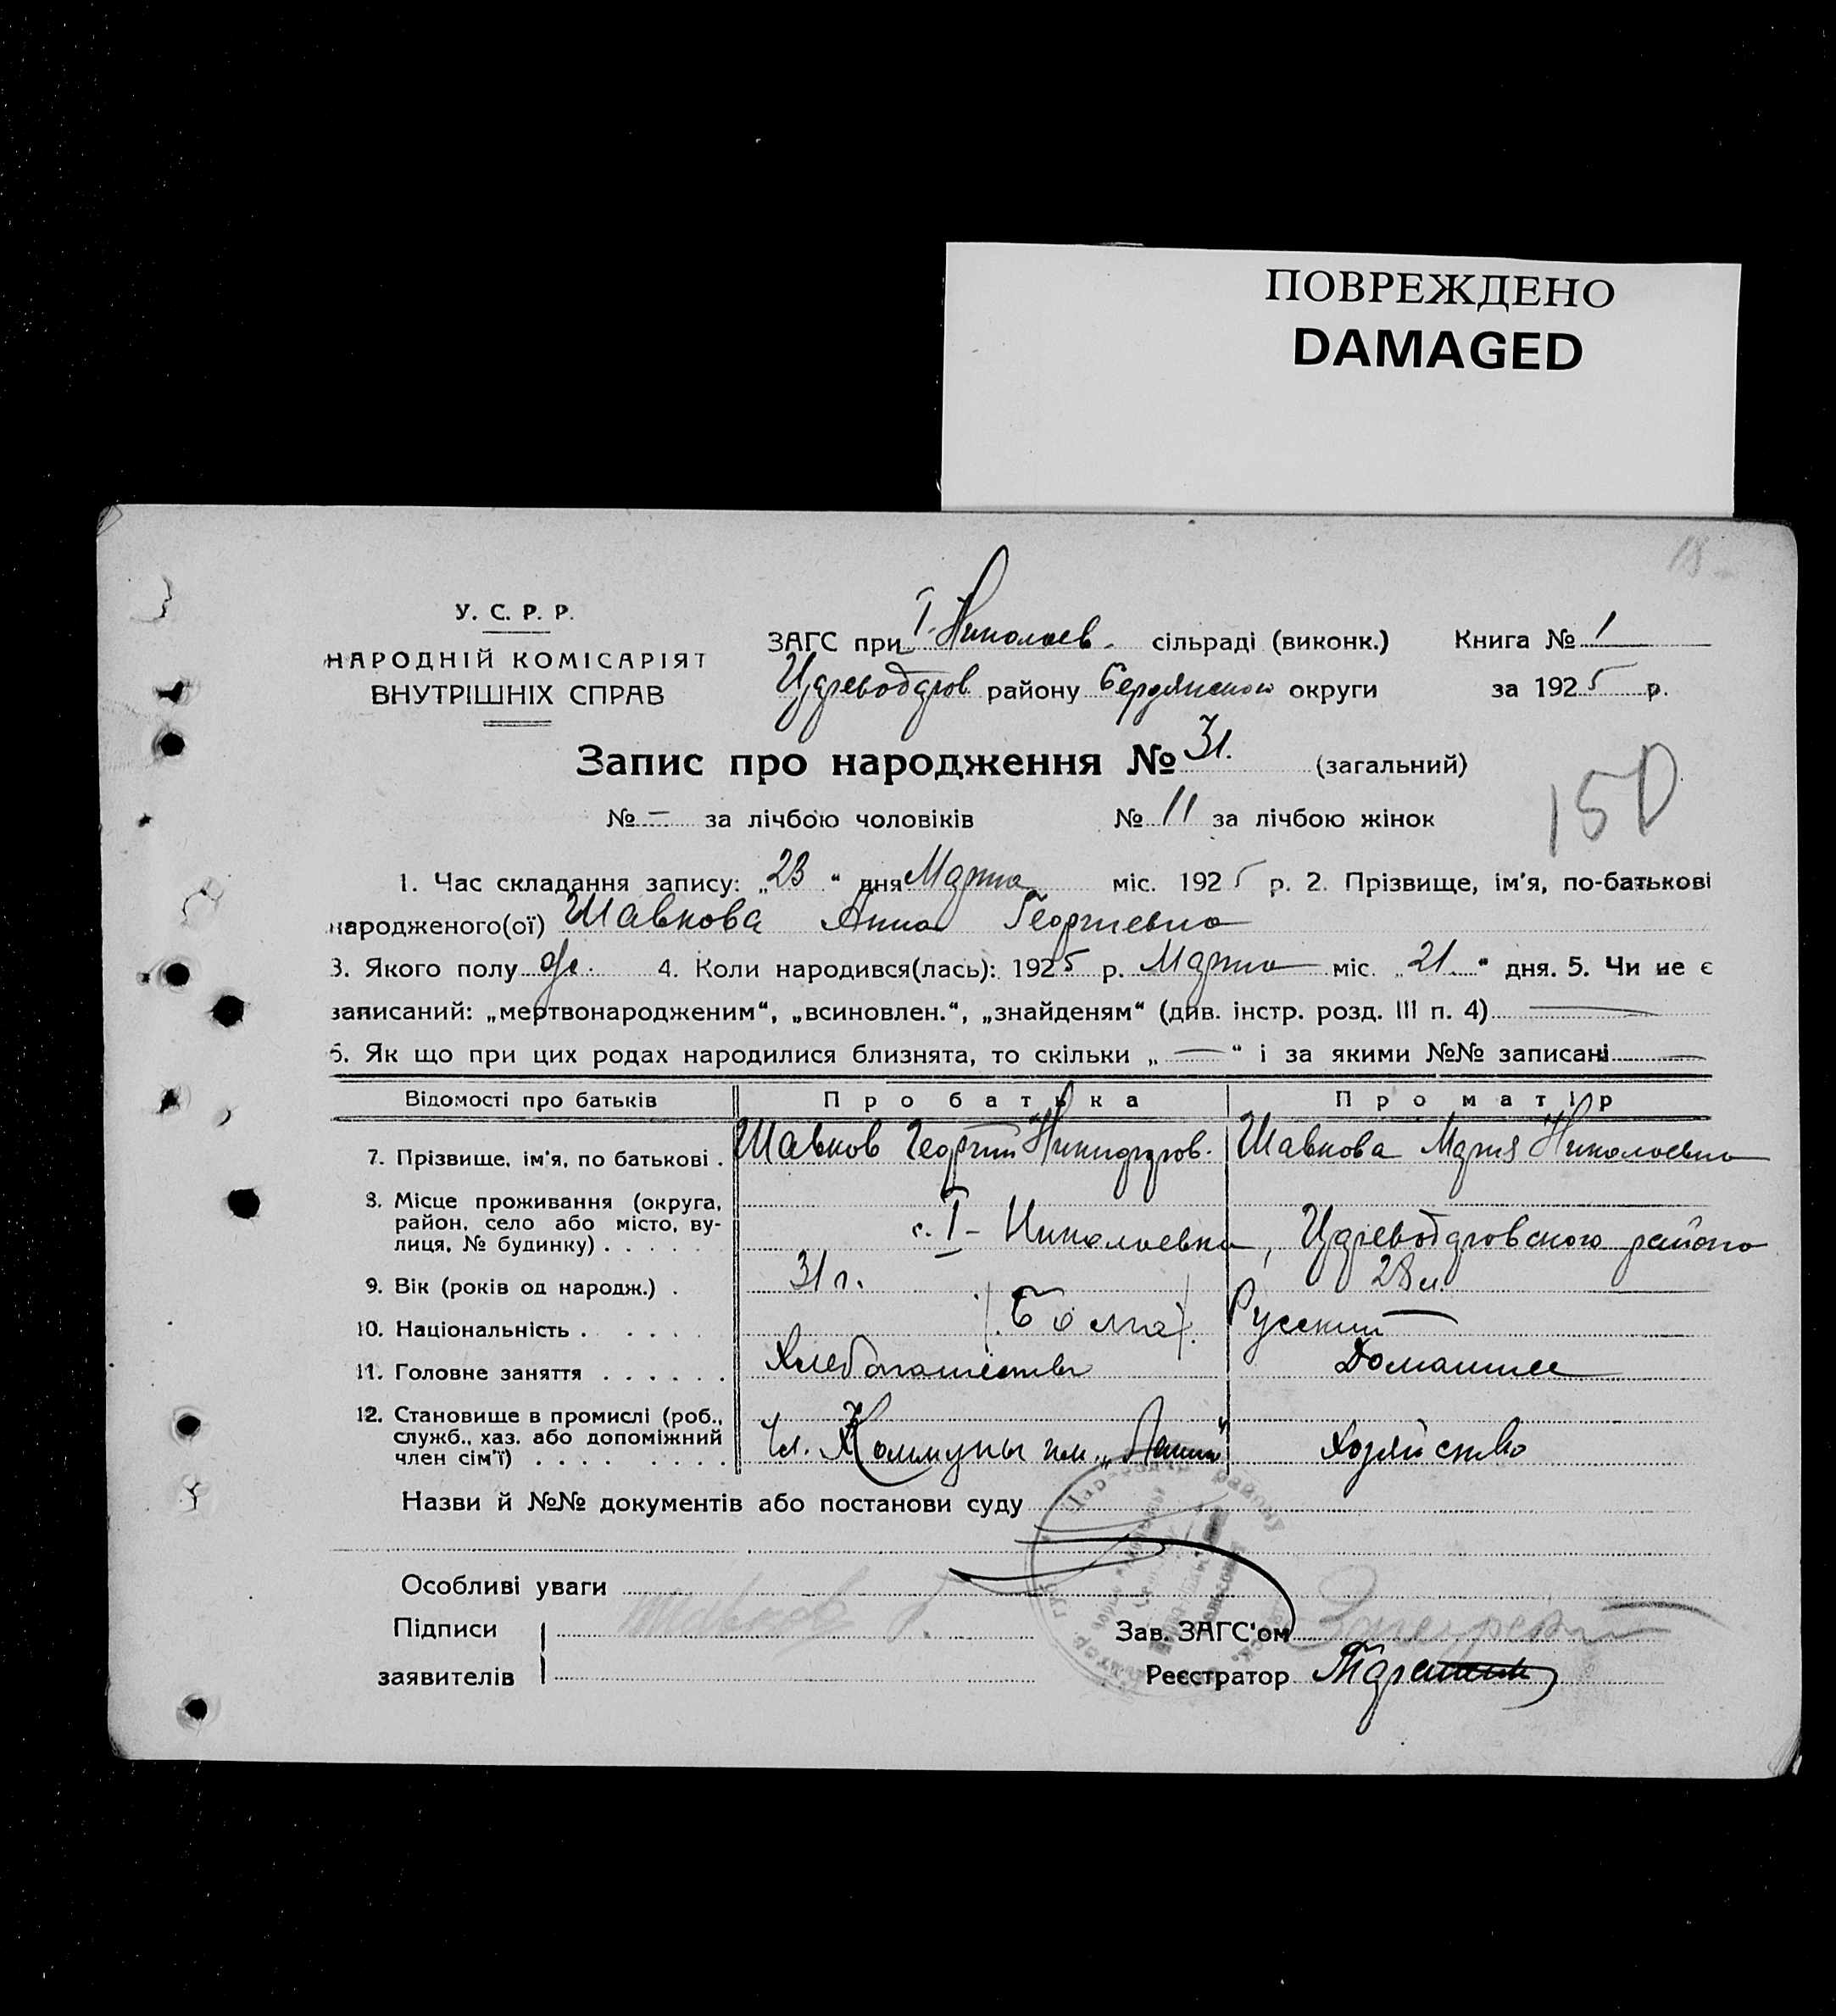 ПОВРЕЖДЕНО
DAMAGED
18
У. С. Р. Р.
НАРОДНІЙ КОМІСАРІЯТ
ВНУТРІШНІХ СПРАВ
ЗАГС при I-Николаев. сільраді (виконк.) Книга № 1
району Бердянского округи за 1925 р.
Запис про народження № 31. (загальний)
№ — за лічбою чоловіків № 11 за лічбою жінок
150
1. Час складання запису: „23“ дня Марта міс. 1925 р. 2. Прізвище, ім'я, по-батькові
народженого(ої) Шавкова Анна Георгиевна
3. Якого полу ж. 4. Коли народився(лась): 1925 р. Марта міс. „21.“ дня. 5. Чи не є
записаний: „мертвонародженим“, „всиновлен.“, „знайденям“ (див. інстр. розд. III п. 4) —
6. Як що при цих родах народилися близнята, то скільки „—“ і за якими №№ записані —
Відомості про батьків Про батька Про матір
7. Прізвище, ім'я, по батькові . Шавков Георгий Никифоров. Шавкова Мария Николаевна
8. Місце проживання (округа,
район, село або місто, ву-
лиця, № будинку) . . . . . с. I-Николаевка, района
9. Вік (років од народж.) . 31 г. 28 л.
10. Національність . . . . . Русский
11. Головне заняття . . . . . . Хлебопашество Домашнее
12. Становище в промислі (роб.,
служб., хаз. або допоміжний
член сім'ї) . . . . . . . . Чл. Коммуны им. „Ленина“ Хозяйство
Назви й №№ документів або постанови суду
Особливі уваги
Підписи Шавков Г.
Зав. ЗАГС'ом
заявителів
Реєстратор